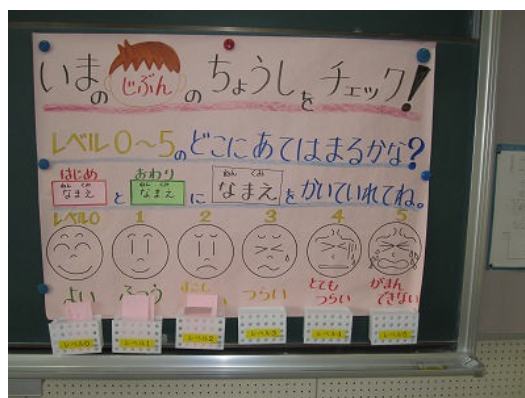 いまのじぶんのちょうしをチェック!
レベル0〜5のどこにあてはまるかな?
はじめ おわり
ねん くみ ねん くみ ねん くみ
なまえ と なまえ に なまえ をかいていれてね。
レベル0 1 2 3 4 5
よい ふつう すこし つらい とても つらい がまん できない
レベル0 レベル1 レベル2 レベル3 レベル4 レベル5